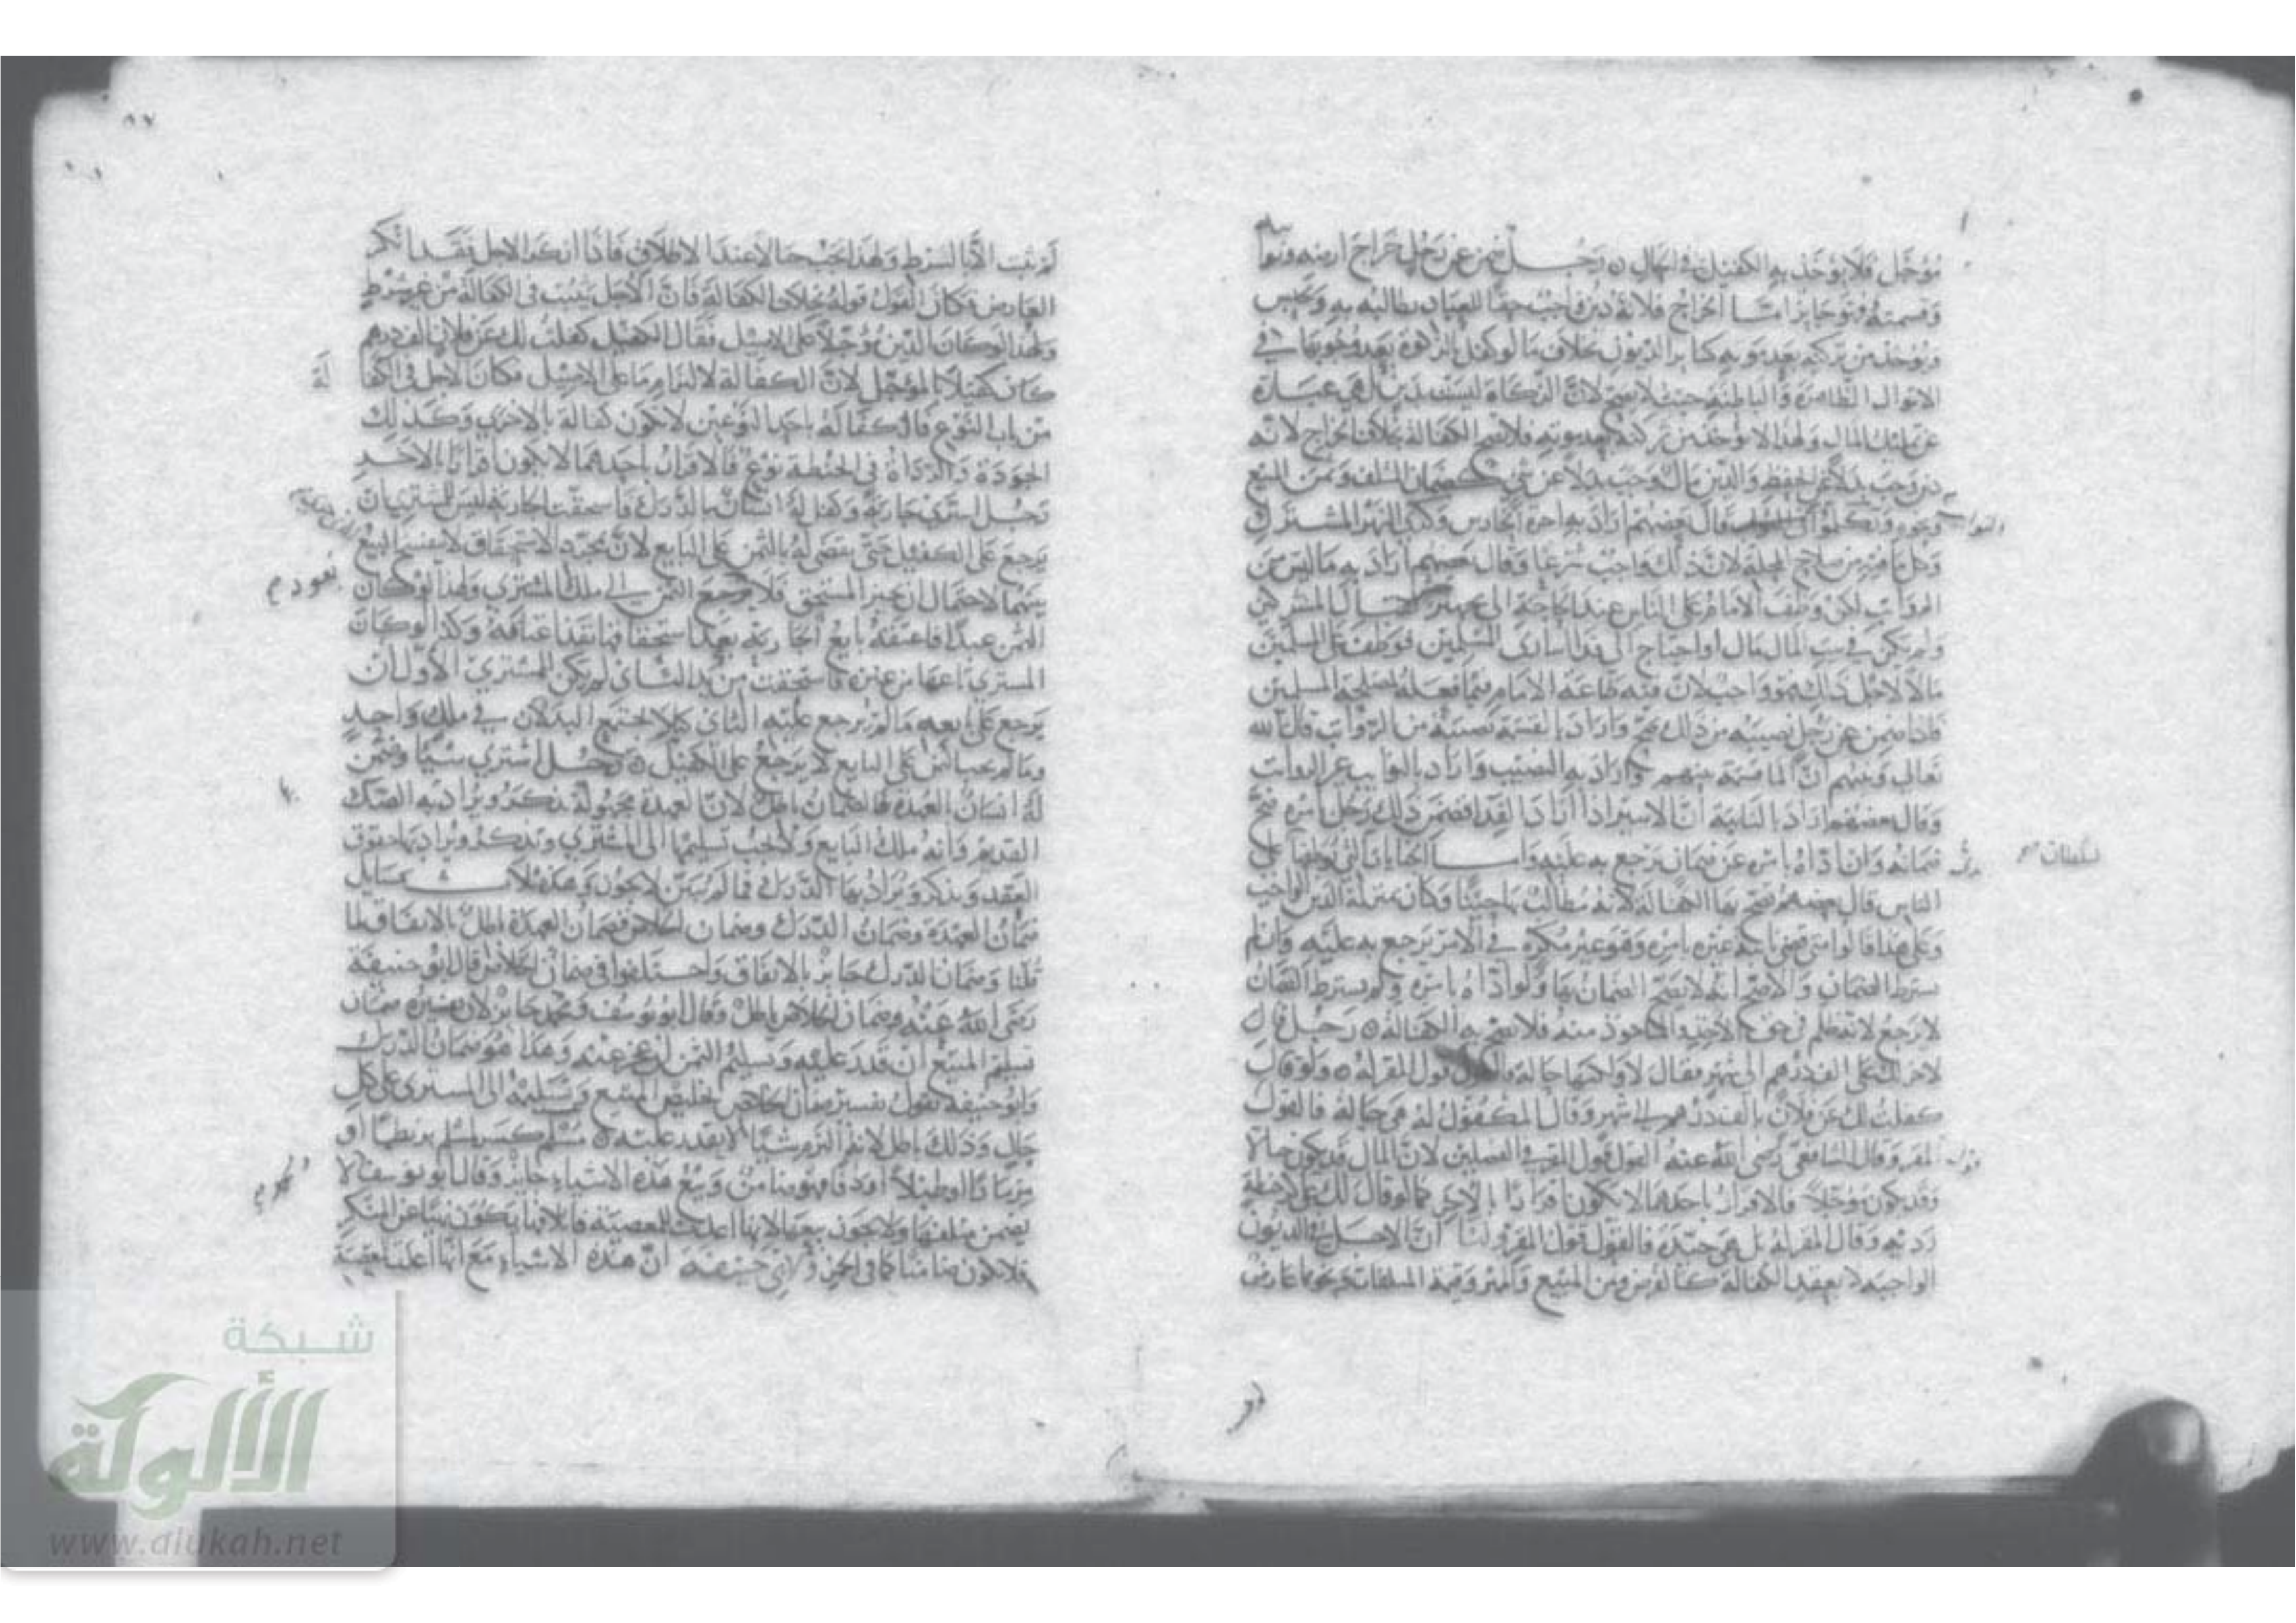 مؤجل فلا يؤخذ به الكفيل في الحال ٥ رجل ضمن عن رجل خراج ارضه ونوا
وقسمته فهو جايز اما الخراج فلانه دين واجب حقا للعباد يطالبه به ويحبس
ويؤخذ من تركته بعد موته كسائر الديون بخلاف ما لو كفل بالزكاة بعد وجوبها في
الاموال الظاهرة والباطنة حيث لا يصح لان الزكاة ليست بدين بل هي عبارة
عن تمليك المال ولهذا لا يؤخذ من تركته بعد موته فلا تصح الكفالة بخلاف الخراج لانه
دين وجب بدلا عن الحفظ والدين مال وجب بدلا عن شيء كضمان المتلف وثمن المبيع
قال بعضهم اراد به اجرة الحارس وكري النهر المشترك
لان ذلك واجب شرعا وقال بعضهم اراد به ما ليس من
الرواتب لكن وظف الامام على الناس عند الحاجة الى تجهيز لقتال المشركين
ولم يكن في بيت المال مال او احتاج الى فدا اسارى المسلمين فوظف على المسلمين
مالا لاجل ذلك فهو واجب لان فيه طاعة الامام فيما فعله لمصلحة المسلمين
فاذا ضمن عن رجل نصيبه من ذلك صح واراد بالقسمة نصيبه من الرواتب قال الله
تعالى ونبئهم ان الما قسمة بينهم واراد به النصيب واراد بالنوايب غير الرواتب
وقال بعضهم اراد بالنايبة ان الاسير اذا اراد الفدا فضمن ذلك رجل بامره صح
ضمانه وان اداه بامره عن ضمان يرجع به عليه واما الجنايات التي يوظفها على
سلطان صح
الناس قال بعضهم تصح بها الكفالة لانه مطالب بها حسا وكان بمنزلة الدين الواجب
وعلى هذا قالوا من قضى نايبة غيره بامره وهو غير مكره في الامر يرجع به عليه وان لم
يشترط الضمان والاصح انه لا يصح الضمان بها ولو اداه بامره ولم يشترط الضمان
لا يرجع لانه ظلم في حق الاخذ والماخوذ منه فلا تصح به الكفالة ٥ رجل قال
لاخر لك علي الف درهم الى شهر فقال لا ولكنها حالة فالقول قول المقر له ٥ ولو قال
كفلت لك عن فلان بالف درهم الى شهر وقال المكفول له هي حالة فالقول
للمقر وقال الشافعي رضي الله عنه القول قول المقر في الفصلين لان المال قد يكون حالا
وقد يكون مؤجلا فالاقرار باحدهما لا يكون اقرارا بالاخر كما لو قال لك علي حنطة
ردية وقال المقر له بل هي جيدة فالقول قول المقر ولنا ان الاصل في الديون
الواجبة لا بعقد الكفالة كالقرض وثمن المبيع والمهر وقيمة المتلفات هو عارض
لم يثبت الا بالشرط ولهذا يجب حالا عند الاطلاق فاذا انكر الاجل فقد انكر
العارض فكان القول قوله بخلاف الكفالة فان الاجل يثبت في الكفالة من غير شرط
ولهذا لو كان الدين مؤجلا على الاصيل فقال الكفيل كفلت لك عن فلان الف درهم
كان كفيلا بالمؤجل لان الكفالة لالتزام ما على الاصيل فكان الاجل في الكفا
لة
من باب التنوع فالكفالة باحد النوعين لا تكون كفالة بالاخرى وكذلك
الجودة والرداة في الحنطة نوع فالاقرار باحدهما لا يكون اقرارا بالاخر
رجل اشترى جارية وكفل له انسان بالدرك فاستحقت الجارية فليس للمشتري ان
يرجع على الكفيل حتى يقضى له بالثمن على البايع لان بمجرد الاستحقاق لا ينفسخ البيع
بينهما لاحتمال ان يجيز المستحق فلا يرجع الثمن الى ملك المشتري ولهذا لو كان
يعود صح
الثمن عبدا فاعتقه بايع الجارية بعد استحقاقها نفذ اعتاقه وكذا لو كان
المشتري باعها من غيره فاستحقت من يد الثاني لم يكن للمشتري الاول ان
يرجع على بايعه ما لم يرجع عليه الثاني كيلا يجتمع البدلان في ملك واحد
وما لم يجب الثمن على البايع لا يرجع على الكفيل ٥ رجل اشترى شيئا وضمن
له انسان العهدة فالضمان باطل لان العهدة مجهولة يذكر ويراد به الصك
القديم وانه ملك البايع ولا يجب تسليمها الى المشتري ويذكر ويراد بها حقوق
العقد ويذكر ويراد بها الدرك فما لم يبين لا يجوز وهذه ثلاث مسايل
ضمان العهدة وضمان الدرك وضمان الخلاص فضمان العهدة باطل بالاتفاق لما
قلنا وضمان الدرك جايز بالاتفاق واختلفوا في ضمان الخلاص قال ابو حنيفة
رضي الله عنه وضمان الخلاص باطل وقال ابو يوسف ومحمد جايز لان تفسيره ضمان
تسليم المبيع ان قدر عليه وتسليم الثمن ان عجز عنه وهذا هو ضمان الدرك
وابو حنيفة يقول تفسير ضمان الخلاص تخليص المبيع وتسليمه الى المشتري على كل
حال وذلك باطل لانه التزم شيئا لا يقدر عليه ٥ مسلم كسر لمسلم بربطا او
مزمارا او طبلا او دفا فهو ضامن وبيع هذه الاشياء جايز وقال ابو يوسف لا
يضمن متلفها ولا يجوز بيعها لانها اعدت للمعصية فاتلافها يكون نهيا عن المنكر
فلا يكون ضامنا كما في الخمر ولابي حنيفة ان هذه الاشياء مع انها
شبكة
الألوكة
www.alukah.net